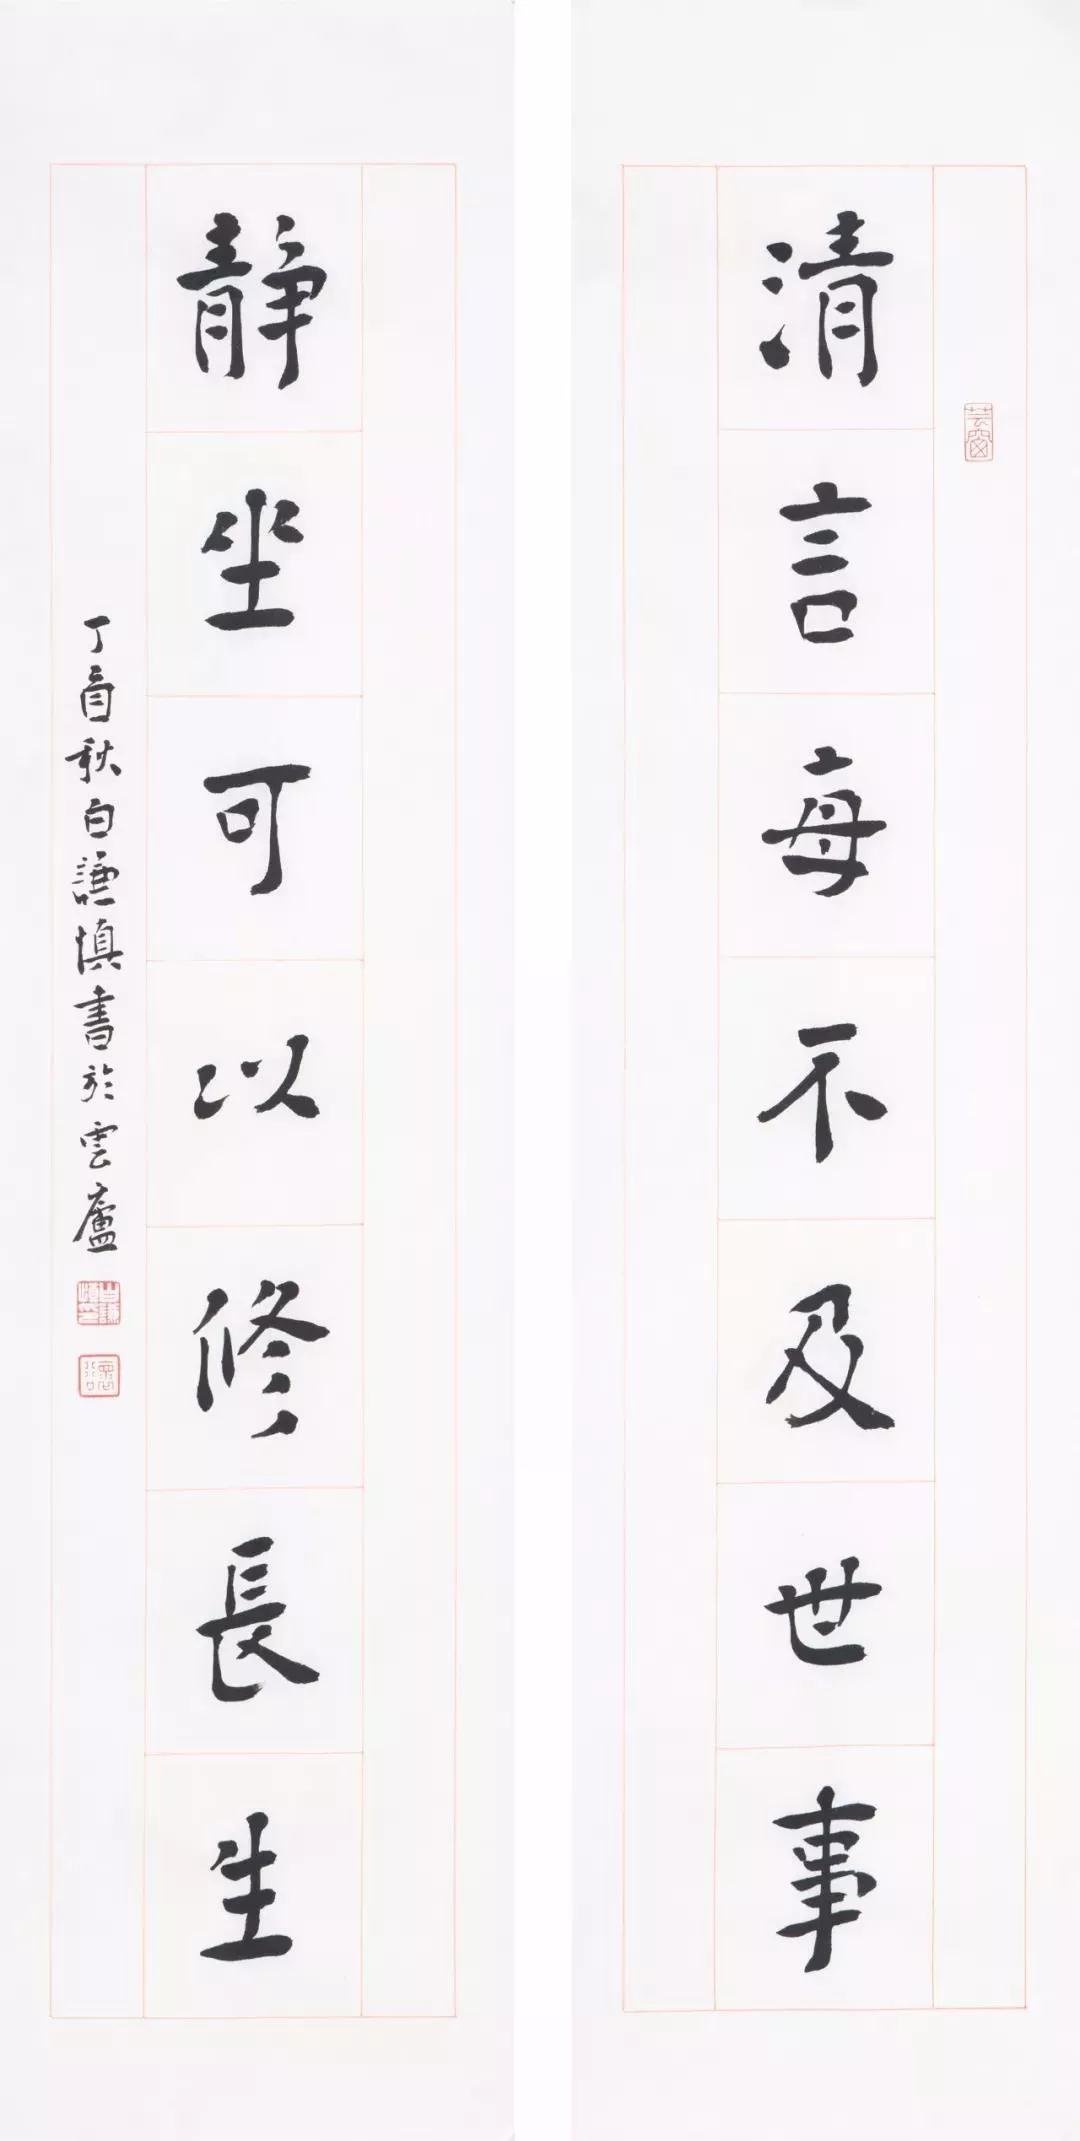 清言每不及世事
靜坐可以修長生
丁酉秋白謙慎書於雲廬
芸窗
白謙慎